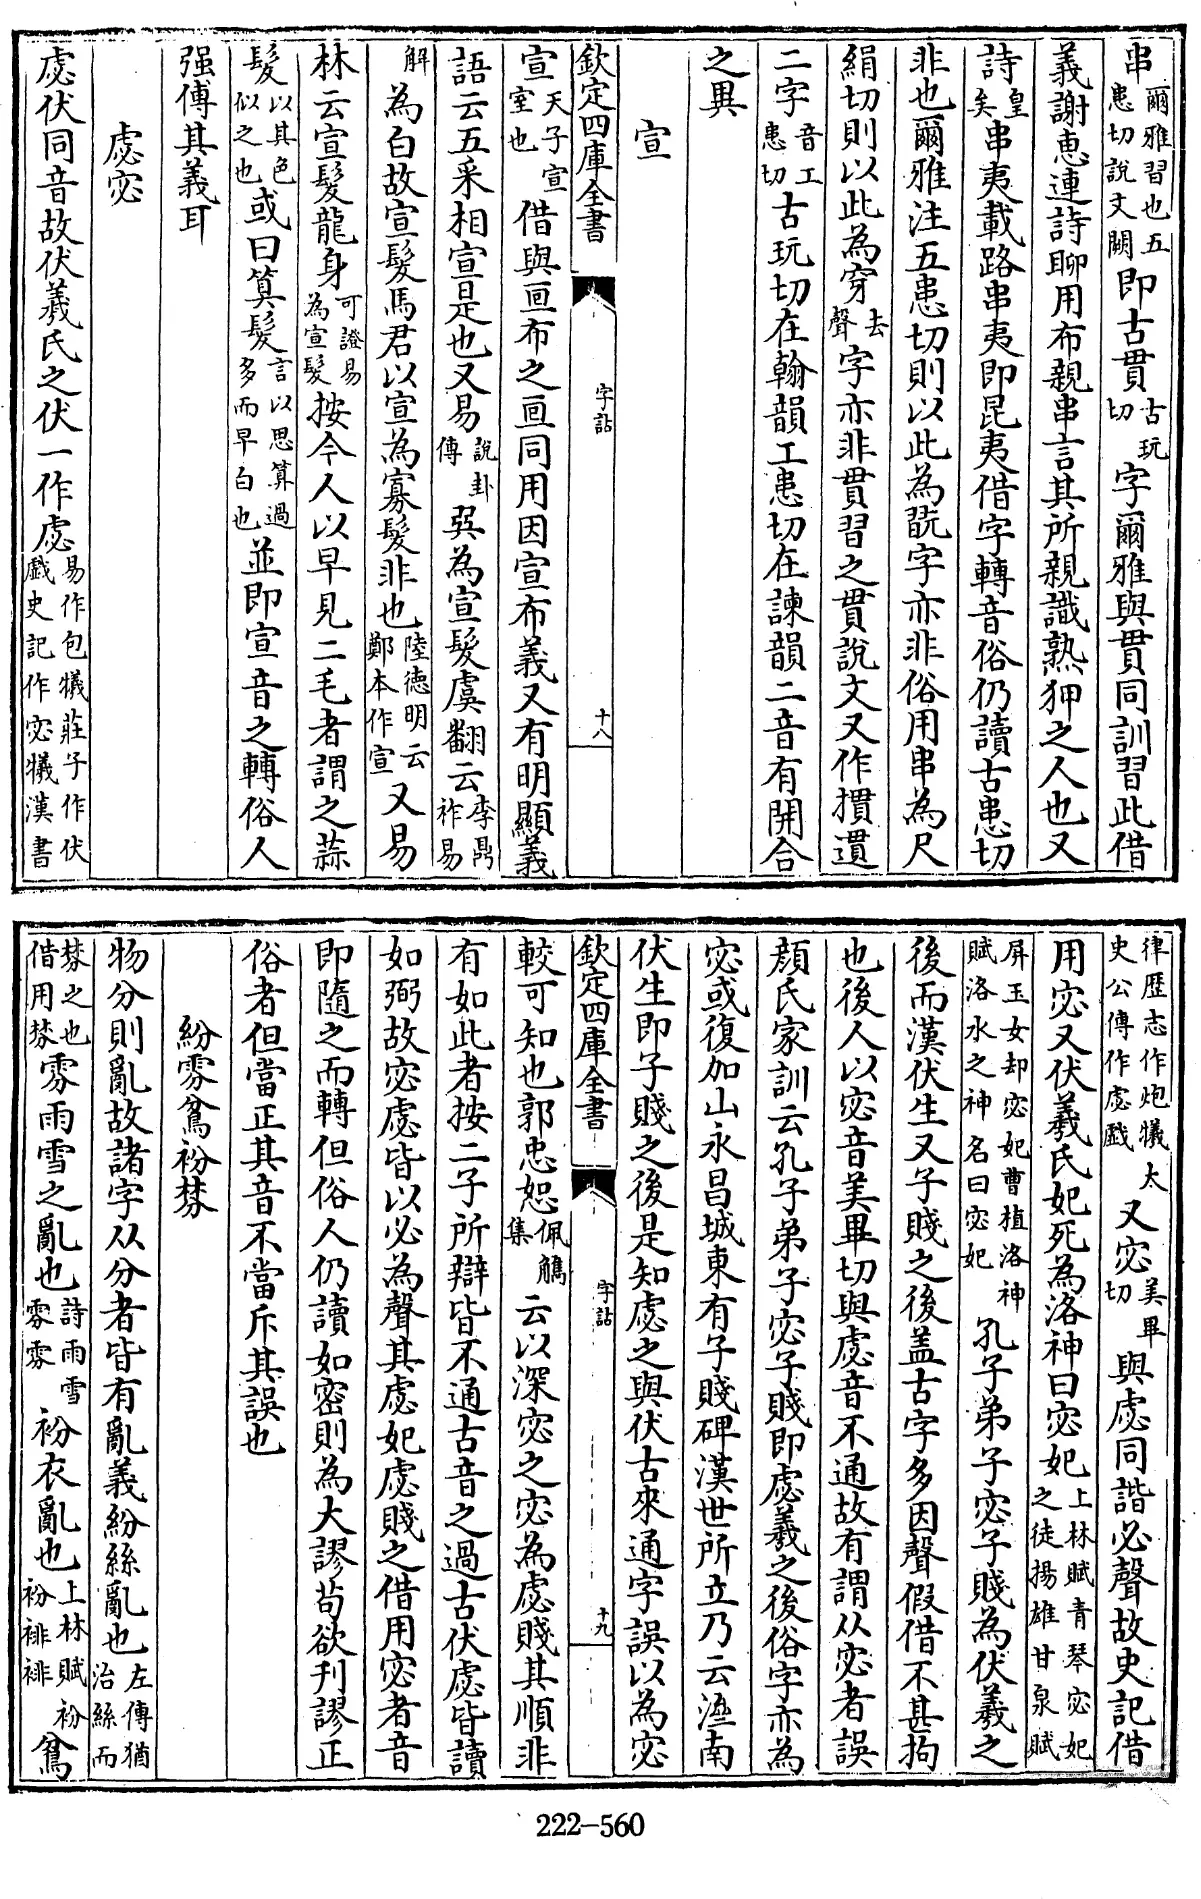 串爾雅習也五患切說文闕即古貫古玩切字爾雅與貫同訓習此借
義謝恵連詩聊用布親串言其所親識熟狎之人也又
詩皇矣串夷載路串夷即昆夷借字轉音俗仍讀古患切
非也爾雅注五患切則以此為翫字亦非俗用串為尺
絹切則以此為穿去聲字亦非貫習之貫說文又作摜遺
二字音工患切古玩切在翰韻工患切在諫韻二音有開合
之異
宣
欽定四庫全書
字詁
十八
宣天子宣室也借與亘布之亘同用因宣布義又有明顯義
語云五采相宣是也又易說卦傳巽為宣髮虞翻云李鼎祚易解
為白故宣髮馬君以宣為寡髮非也陸德明云鄭本作宣又易
林云宣髮龍身可證易為宣髮按今人以早見二毛者謂之蒜
髮以其色似之也或曰算髮言以思算過多而早白也並即宣音之轉俗人
强傅其義耳
虙宓
虙伏同音故伏羲氏之伏一作虙易作包犧莊子作伏戲史記作宓犧漢書
律歷志作炮犧太史公傳作虙戲又宓美畢切與虙同諧必聲故史記借
用宓又伏羲氏妃死為洛神曰宓妃上林賦青琴宓妃之徒揚雄甘泉賦
屏玉女却宓妃曹植洛神賦洛水之神名曰宓妃孔子弟子宓子賤為伏羲之
後而漢伏生又子賤之後盖古字多因聲假借不甚拘
也後人以宓音美畢切與虙音不通故有謂从宓者誤
顔氏家訓云孔子弟子宓子賤即虙羲之後俗字亦為
宓或復加山永昌城東有子賤碑漢世所立乃云濟南
伏生即子賤之後是知虙之與伏古來通字誤以為宓
欽定四庫全書
字詁
十九
較可知也郭忠恕佩觿集云以深宓之宓為虙賤其順非
有如此者按二子所辯皆不通古音之過古伏虙皆讀
如弼故宓虙皆以必為聲其虙妃虙賤之借用宓者音
即隨之而轉但俗人仍讀如密則為大謬茍欲刋謬正
俗者但當正其音不當斥其誤也
紛雰鳻衯棼
物分則亂故諸字从分者皆有亂義紛絲亂也左傳猶治絲而
棼之也借用棼雰雨雪之亂也詩雨雪雰雰衯衣亂也上林賦衯衯裶裶鳻
222-560